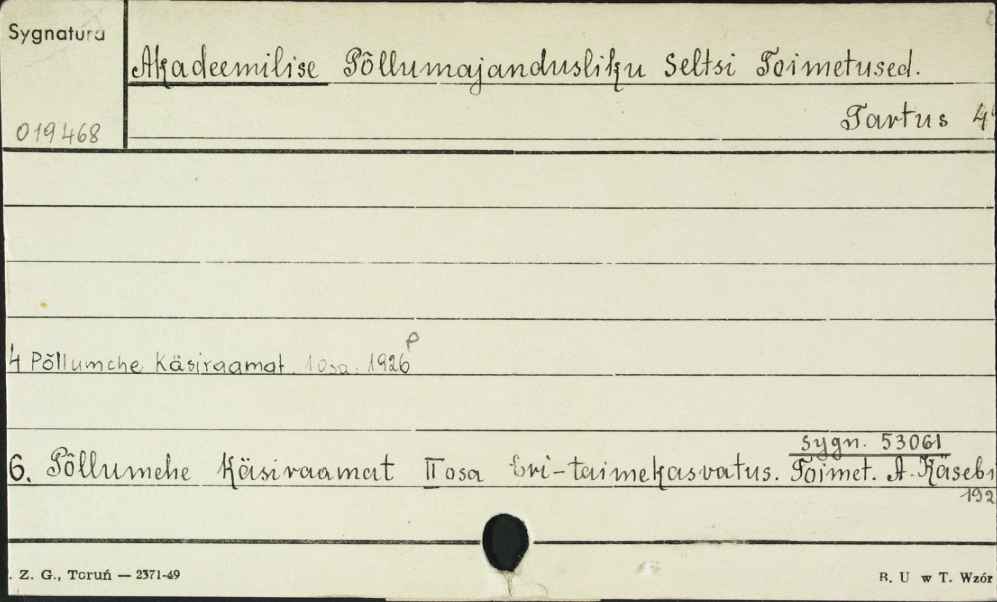 Sygnatura
Akadeemilise Põllumajandusliku Seltsi Toimetused.
Tartus 4°
019468
P
4 Põllumehe Käsiraamat. I osa. 1926
sygn. 53061
6. Põllumehe Käsiraamat II osa Eri-taimekasvatus. Toimet. A. Käsebi
192
. Z. G., Toruń — 2371-49
B. U w T. Wzór